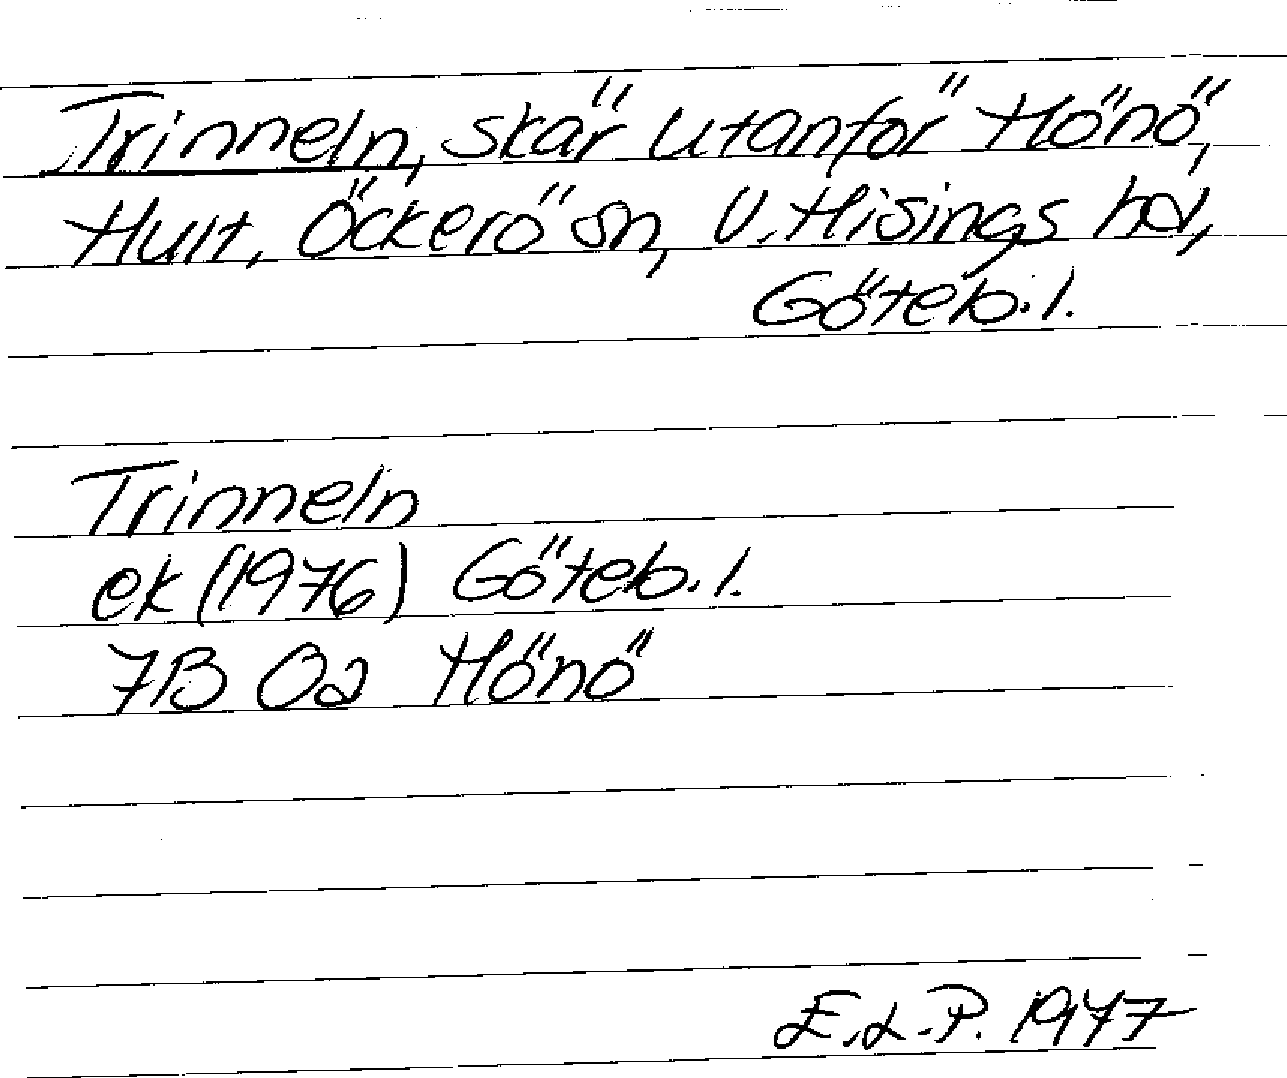 Trinneln, skär utanför Hönö,
Hult, Öckerö sn, V. Hisings hd,
Göteb. l.
Trinneln
ek (1976) Göteb. l.
7B 0a Hönö
E.L.P. 1977